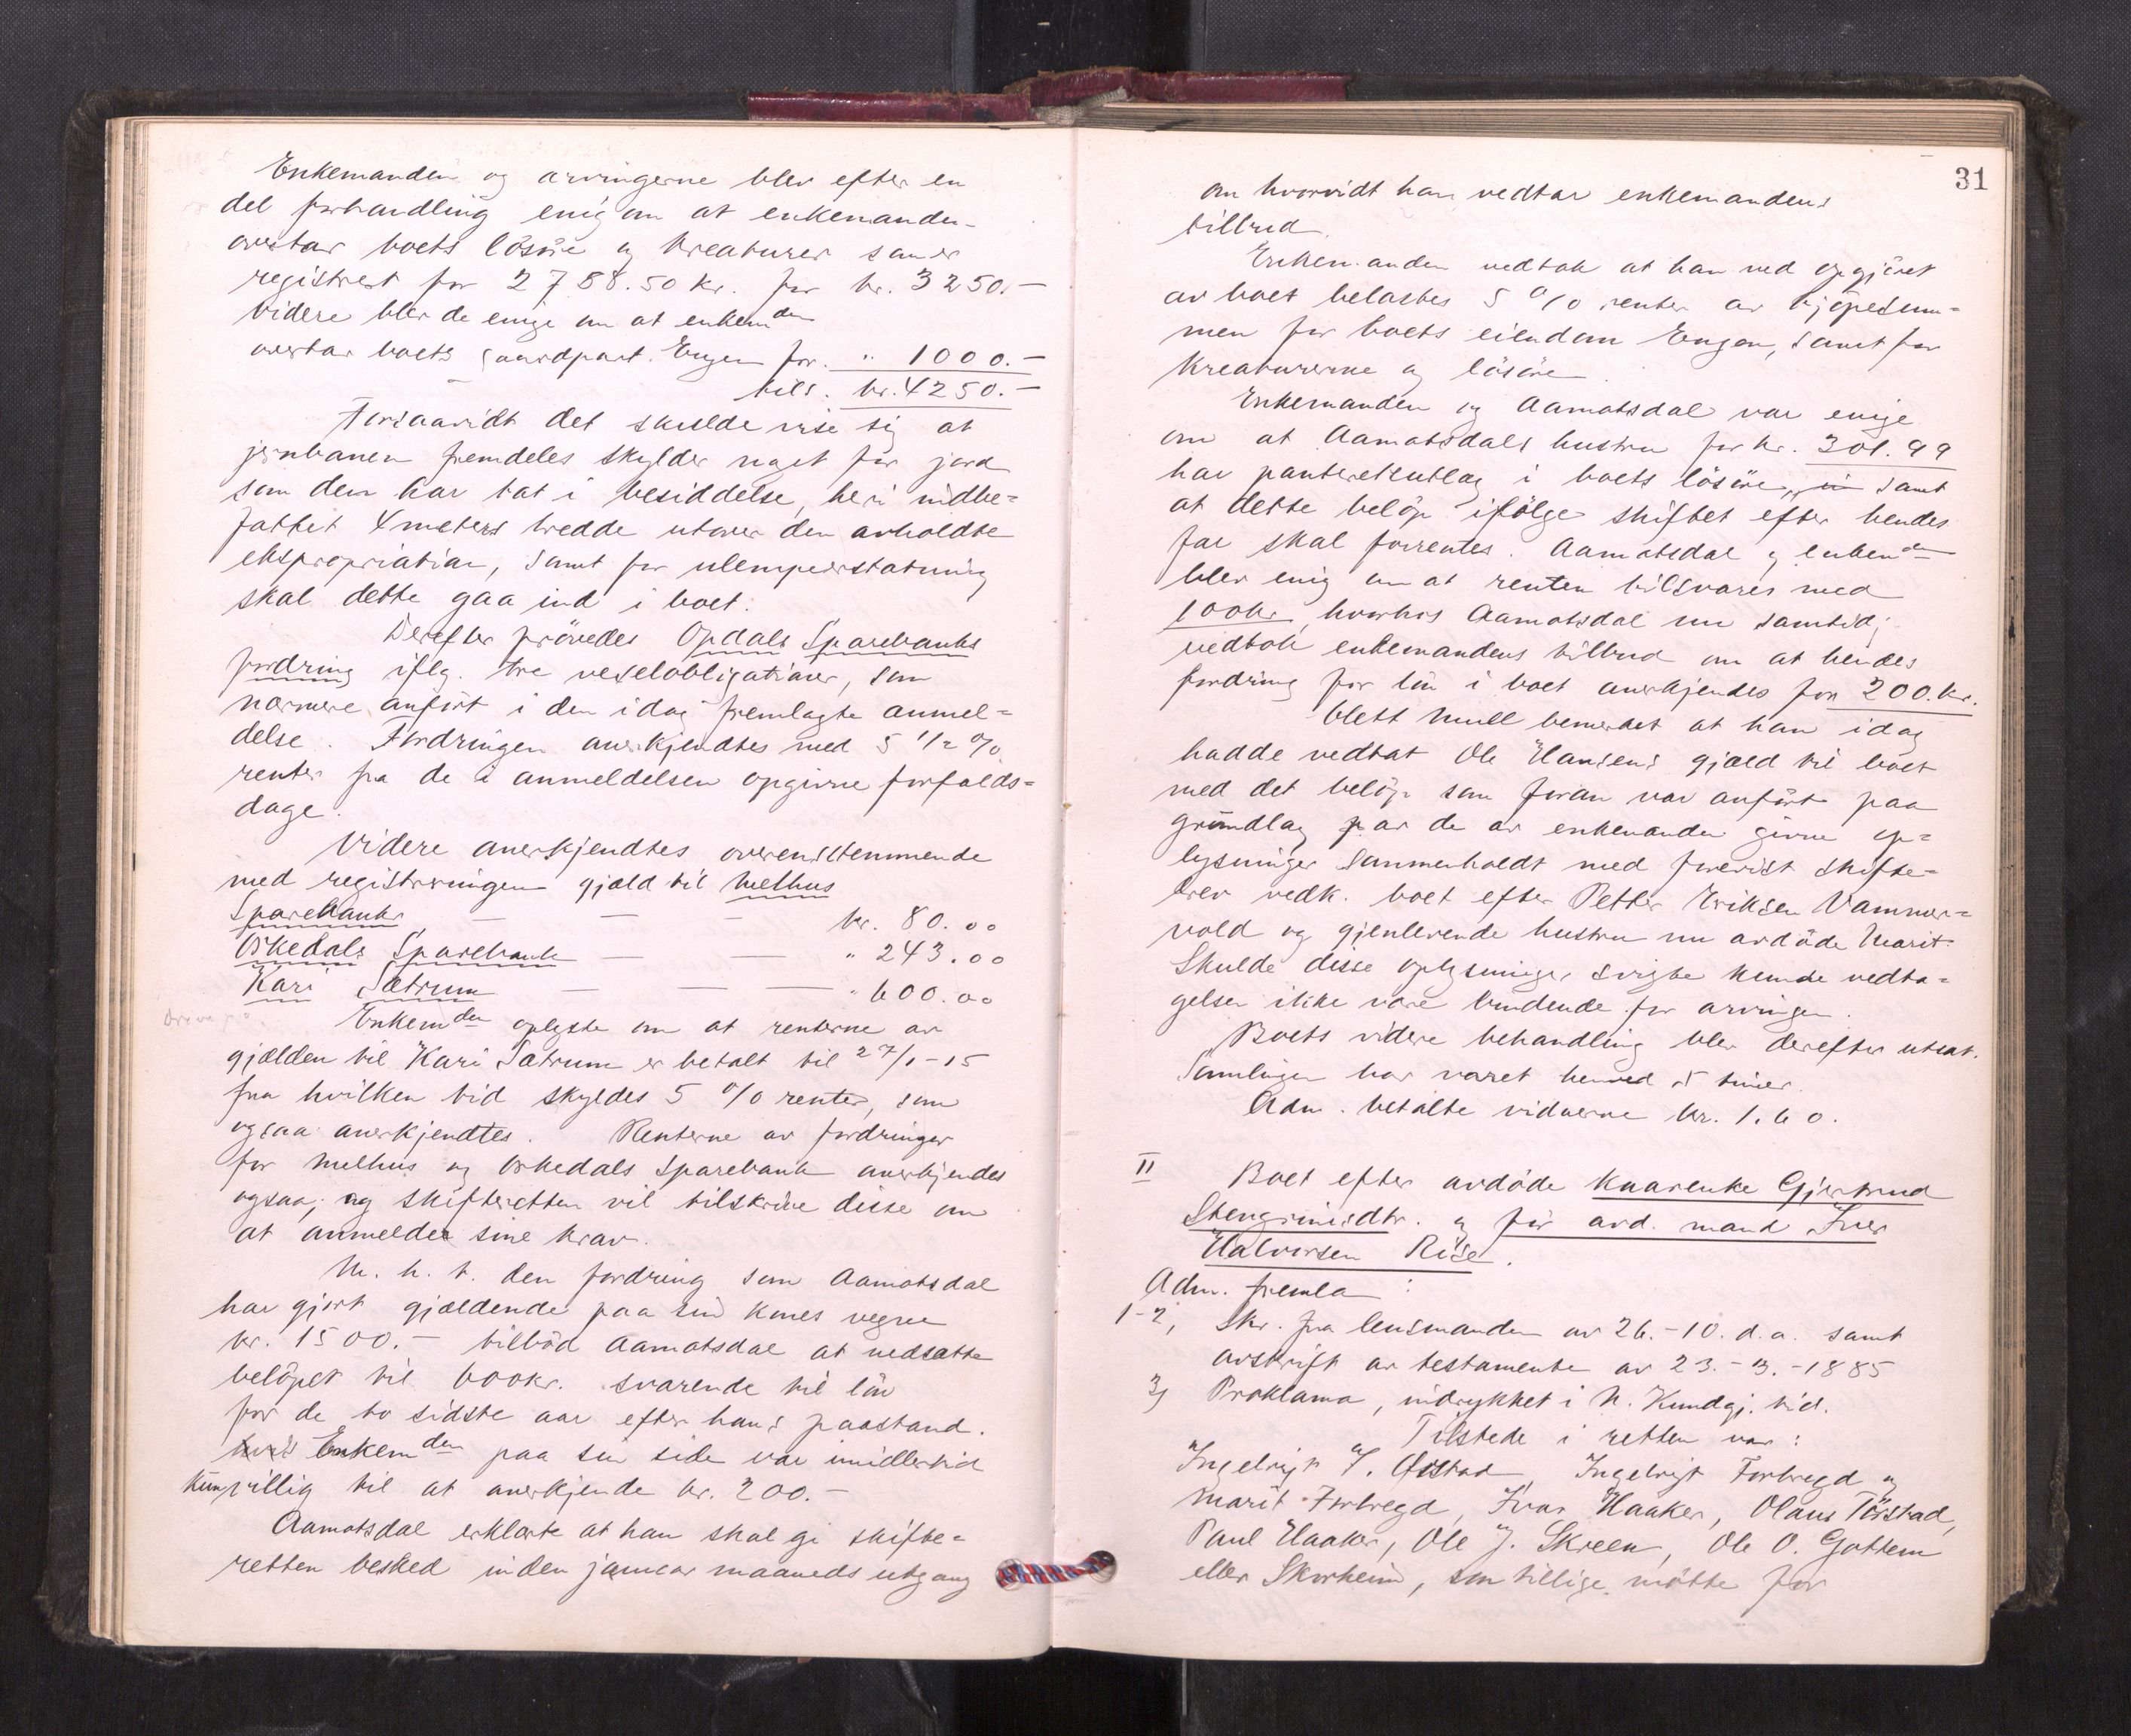 Enkemanden og arvingerne blev efter en
del forhandling enig om at enkemanden
overtar boets lösöre og kreaturer som er
registrert for 2788.50 kr. for kr. 3250.-
Videre blev de enige om at enkemden
overtar boets jordpart Engen for. " 1000.-
tils. kr. 4250.-
Forsaavidt det skulde vise sig at
jernbanen fremdeles skylder noget for jord
som den har tat i besiddelse, heri indbe=
fattet 4 meters bredde utover den avholdte
ekspropriation, samt for ulempeerstatning
skal dette gaa ind i boet.
Derefter prövedes Opdals Sparebanks
fordring iflg. tre vexelobligationer, som
nærmere anfört i den idag fremlagte anmel=
delse. Fordringen anerkjendtes med 5 1/2 %
renter fra de i anmeldelsen opgivne forfalds=
dage.
Videre anerkjendtes overensstemmende
med registreringen gjæld til Melhus
Sparebank — — — kr. 80.00
Orkedals Sparebank — — " 243.00
Kari Sætrum — — — " 600.00
Enkemden oplyste om at renterne av
gjælden til Kari Sætrum er betalt til 27/1-15
fra hvilken tid skyldes 5 % renter, som
ogsaa anerkjendtes. Renterne av fordringer
for Melhus og Orkedals Sparebank anerkjendes
ogsaa, og skifteretten vil tilskrive disse om
at anmelde sine krav.
M. h. t. den fordring som Aamotsdal
har gjort gjældende paa sin kones vegne
kr. 1500.- tilböd Aamotsdal at nedsætte
belöpet til 600 kr. svarende til lön
for de to sidste aar efter hans paastand.
Enkemden paa sin side var imidlertid
kun villig til at anerkjende kr. 200.-
Aamotsdal erklærte at han skal gi skifte=
retten besked inden januar maaneds utgang
31
om hvorvidt han vedtar enkemandens
tilbud.
Enkemanden vedtok at han ved opgjöret
av boet belastes 5 % renter av kjöpesum=
men for boets eiendom Engen, samt for
kreaturerne og lösöre.
Enkemanden og Aamotsdal var enige
om at Aamotsdals hustru for kr. 301.99
har panteretsutlæg i boets lösöre, samt
at dette belöp ifölge skiftet efter hendes
far skal forrentes. Aamotsdal og enkemden
blev enig om at renten tilsvares med
100 kr, hvorhos Aamotsdal nu samtidig
vedtok enkemandens tilbud om at hendes
fordring for lön i boet anerkjendes for 200. kr.
Klett Mull bemerket at han idag
hadde vedtat Ole Hansens gjæld til boet
med det belöp som foran var anfört paa
grundlag av de av enkemanden givne op=
lysninger sammenholdt med forevist skifte=
brev vedk. boet efter Petter Eriksen Vammer=
vold og gjenlevende hustru nu avdöde Marit.
Skulde disse oplysninger svigte kunde vedta=
gelsen ikke være bindende for arvingen.
Boets videre behandling blev derefter utsat.
Samlingen har varet henved 5 timer.
Adm. betalte vidnerne kr. 1.60.
II Boet efter avdöde Kaarenke Gjertrud
Stengrimsdtr. og för avd. mand Iver
Halvorsen Rise.
Adm. fremla:
1-2, Skr. fra lensmanden av 26.-10. d.a. samt
avskrift av testamente av 23.-3.-1885
3) Proklama, indrykket i N. Kundgj. tid.
Tilstede i retten var:
Ingebrigt J. Aastad, Ingebrigt Forbregd og
Marit Forbregd, Ivar Haaker, Olaus Törstad,
Paul Haaker, Ole J. Skreen, Ole O. Gottem
eller Skorheim, som tillige mötte for